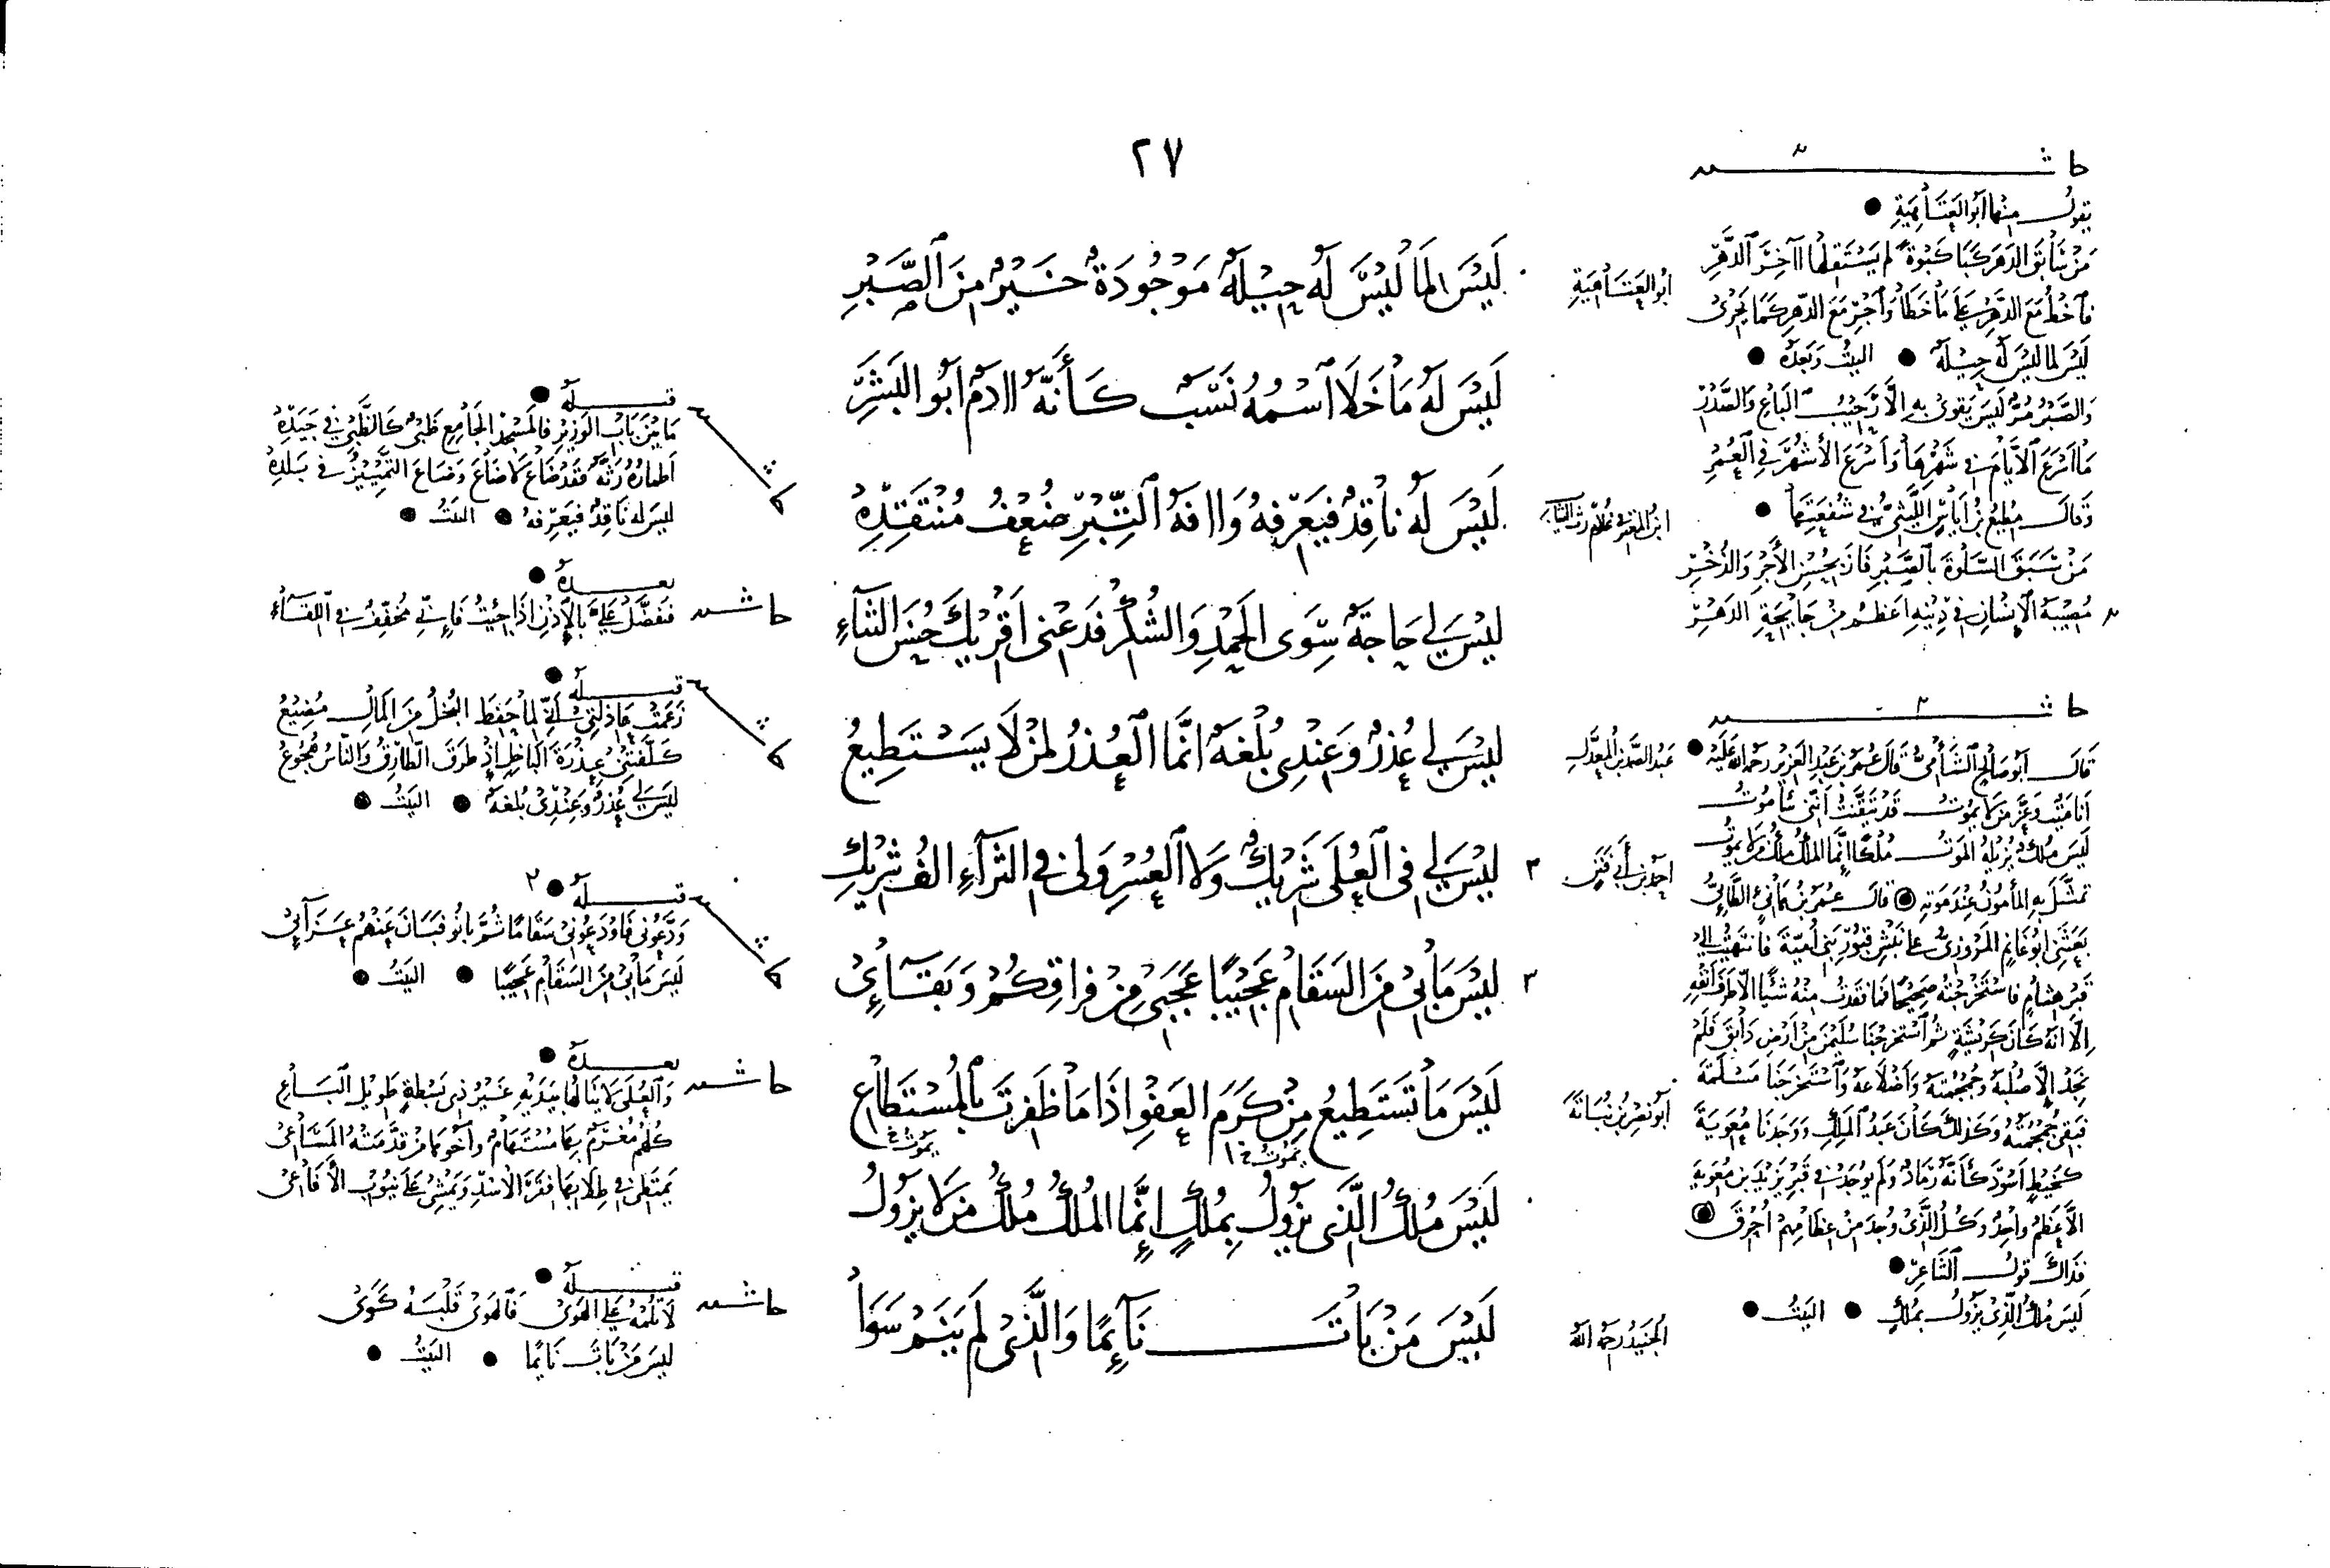 ٢٧
حاشية
يقول منها أبو العتاهية ●
مَنْ سَابَقَ الدَّهْرَ كَبَا كَبْوَةً لَمْ يَسْتَقِلْهَا آخِرَ الدَّهْرِ
فَاخْطُ مَعَ الدَّهْرِ عَلَى مَا خَطَا وَاجْرِ مَعَ الدَّهْرِ كَمَا يَجْرِي
لَيْسَ لِمَا لَيْسَ لَهُ حِيلَةٌ ● البيت وبعده ●
وَالصَّبْرُ مُرٌّ لَيْسَ يَقْوَى بِهِ إِلَّا رَحِيبُ الْبَاعِ وَالصَّدْرِ
مَا أَسْرَعَ الْأَيَّامَ فِي شَهْرِهَا وَأَسْرَعَ الْأَشْهُرَ فِي الْعُمْرِ
وَقَالَ مُطِيعُ بْنُ إِيَاسٍ اللَّيْثِيُّ فِي ●
مَنْ سَبَقَ السَّلْوَةَ بِالصَّبْرِ فَازَ بِحُسْنِ الْأَجْرِ وَالذُّخْرِ
مُصِيبَةُ الْإِنْسَانِ فِي دِينِهِ أَعْظَمُ مِنْ جَائِحَةِ الدَّهْرِ
حاشية
قَالَ أَبُو صَالِحٍ الشَّامِيُّ قَالَ عُمَرُ بْنُ عَبْدِ الْعَزِيزِ رَحْمَةُ اللهِ عَلَيْهِ ●
أَنَا مَيِّتٌ وَعَزَّ مَنْ لَا يَمُوتُ قَدْ تَيَقَّنْتُ أَنَّنِي سَأَمُوتُ
لَيْسَ مُلْكٌ يُزِيلُهُ الْمَوْتُ مُلْكًا إِنَّمَا الْمُلْكُ مُلْكُ مَنْ لَا يَمُوتُ
تَمَثَّلَ بِهِ الْمَأْمُونُ عِنْدَ مَوْتِهِ ◉ قَالَ عُمَرُ بْنُ هَانِئٍ الطَّائِيُّ
بَعَثَنِي أَبُو غَانِمٍ الْمَرْوَزِيُّ عَلَى نَبْشِ قُبُورِ بَنِي أُمَيَّةَ فَانْتَهَيْتُ إِلَى
قَبْرِ هِشَامٍ فَاسْتَخْرَجْتُهُ صَحِيحًا فَمَا فَقَدْتُ مِنْهُ شَيْئًا إِلَّا طَرَفَ أَنْفِهِ
إِلَّا أَنَّهُ كَانَ ثُمَّ اسْتَخْرَجْنَا سُلَيْمَنَ مِنْ أَرْضِ دَابِقَ فَلَمْ
نَجِدْ إِلَّا صُلْبَهُ وَجُمْجُمَتَهُ وَأَضْلَاعَهُ وَاسْتَخْرَجْنَا مَسْلَمَةَ
فَبَقِيَ جُمْجُمَتُهُ وَكَذَلِكَ كَانَ عَبْدُ الْمَلِكِ وَوَجَدْنَا مُعَوِيَةَ
كَخَيْطٍ أَسْوَدَ كَأَنَّهُ رَمَادٌ وَلَمْ يُوجَدْ فِي قَبْرِ يَزِيدَ بْنِ مُعَوِيَةَ
إِلَّا عَظْمٌ وَاحِدٌ وَكُلُّ الَّذِي وُجِدَ مِنْ عِظَامِهِمْ أُحْرِقَ ◉
فَذَاكَ قَوْلُ الشَّاعِرِ ●
لَيْسَ مُلْكُ الَّذِي يَزُولُ بِمُلْكٍ ● البيت ●
أبو العتاهية
لَيْسَ لِمَا لَيْسَ لَهُ حِيلَةٌ مَوْجُودَةٌ خَيْرٌ مِنَ الصَّبْرِ
لَيْسَ لَهُ مَا خَلَا اسْمُهُ نَسَبٌ كَأَنَّهُ آدَمُ أَبُو الْبَشَرِ
لَيْسَ لَهُ نَاقِدٌ فَيَعْرِفَهُ وَآفَةُ التِّبْرِ ضُعْفُ مُنْتَقِدِهْ
لَيْسَ لِي حَاجَةٌ سِوَى الْحَمْدِ وَالشُّكْرِ فَدَعْنِي أَقْرِيكَ حُسْنَ الثَّنَاءِ
عبد الصمد بن المعذل
لَيْسَ لِي عُذْرٌ وَعِنْدِي بُلْغَةٌ إِنَّمَا الْعُذْرُ لِمَنْ لَا يَسْتَطِيعُ
أحمد بن أبي فنن
٣ لَيْسَ لِي فِي الْعُلَى شَرِيكٌ وَلَا الْعُسْرِ وَلِي فِي الثَّرَاءِ أَلْفُ شَرِيكِ
٣ لَيْسَ مَا بِي مِنَ السَّقَامِ عَجِيبًا عَجَبِي مِنْ فِرَاقِكُمْ وَبَقَائِي
أبو نصر بن نباتة
لَيْسَ مَا تَسْتَطِيعُ مِنْ كَرَمِ الْعَفْوِ إِذَا مَا ظَفِرْتَ بِالْمُسْتَطَاعِ
يَمُوتُ خ يَمُوتُ خ
لَيْسَ مُلْكُ الَّذِي يَزُولُ بِمُلْكٍ إِنَّمَا الْمُلْكُ مُلْكُ مَنْ لَا يَزُولُ
الجنيد رحمه الله
لَيْسَ مَنْ بَاتَ نَائِمًا وَالَّذِي لَمْ يَنَمْ سَوَا
قبله ●
مَا بَيْنَ بَابِ الْوَزِيرِ فَالْمَسْجِدِ الْجَامِعِ ظَبْيٌ كَالظَّبْيِ فِي جَيَدِهْ
أَطْمَارُهُ رَثَّةٌ فَقَدْ ضَاعَ لَا ضَاعَ وَضَاعَ التَّمْيِيزُ فِي بَلَدِهْ
لَيْسَ لَهُ نَاقِدٌ فَيَعْرِفَهُ ● البيت ●
حاشية
بعده ●
فَتَفَضَّلْ عَلَيَّ بِالْإِذْنِ إِذَا جِئْتُ فَإِنِّي مُخَفِّفٌ فِي اللِّقَاءِ
قبله ●
زَعَمَتْ عَاذِلَتِي أَنِّي لِمَا حَفِظَ الْبُخْلُ مِنَ الْمَالِ مُضِيعُ
كَلَّفَتْنِي عِذْرَةَ الْبَاخِلِ إِذْ طَرَقَ الطَّارِقُ وَالنَّاسُ هُجُوعُ
لَيْسَ لِي عُذْرٌ وَعِنْدِي بُلْغَةٌ ● البيت ●
قبله ●
وَدَّعُونِي فَأَوْدَعُونِي سَقَامًا ثُمَّ بَانُوا فَبَانَ عَنْهُمْ عَزَائِي
لَيْسَ مَا بِي مِنَ السَّقَامِ عَجِيبًا ● البيت ●
حاشية
بعده ●
وَالْعُلَى لَا يَنَالُهَا بِيَدَيْهِ غَيْرُ ذِي بَسْطَةٍ طَوِيلِ الْبَاعِ
كُلُّهُمْ مُغْرَمٌ بِهَا مُسْتَهَامٌ وَأَخُوهَا مَنْ قَدَّمَتْهُ الْمَسَاعِي
يَمْتَطِي فِي طِلَابِهَا فَقَرَ الْأُسْدِ وَيَمْشِي عَلَى نُيُوبِ الْأَفَاعِي
حاشية
قبله ●
لَا تَلُمْهُ عَلَى الْهَوَى فَالْهَوَى قَلْبَهُ كَوَى
لَيْسَ مَنْ بَاتَ نَائِمًا ● البيت ●